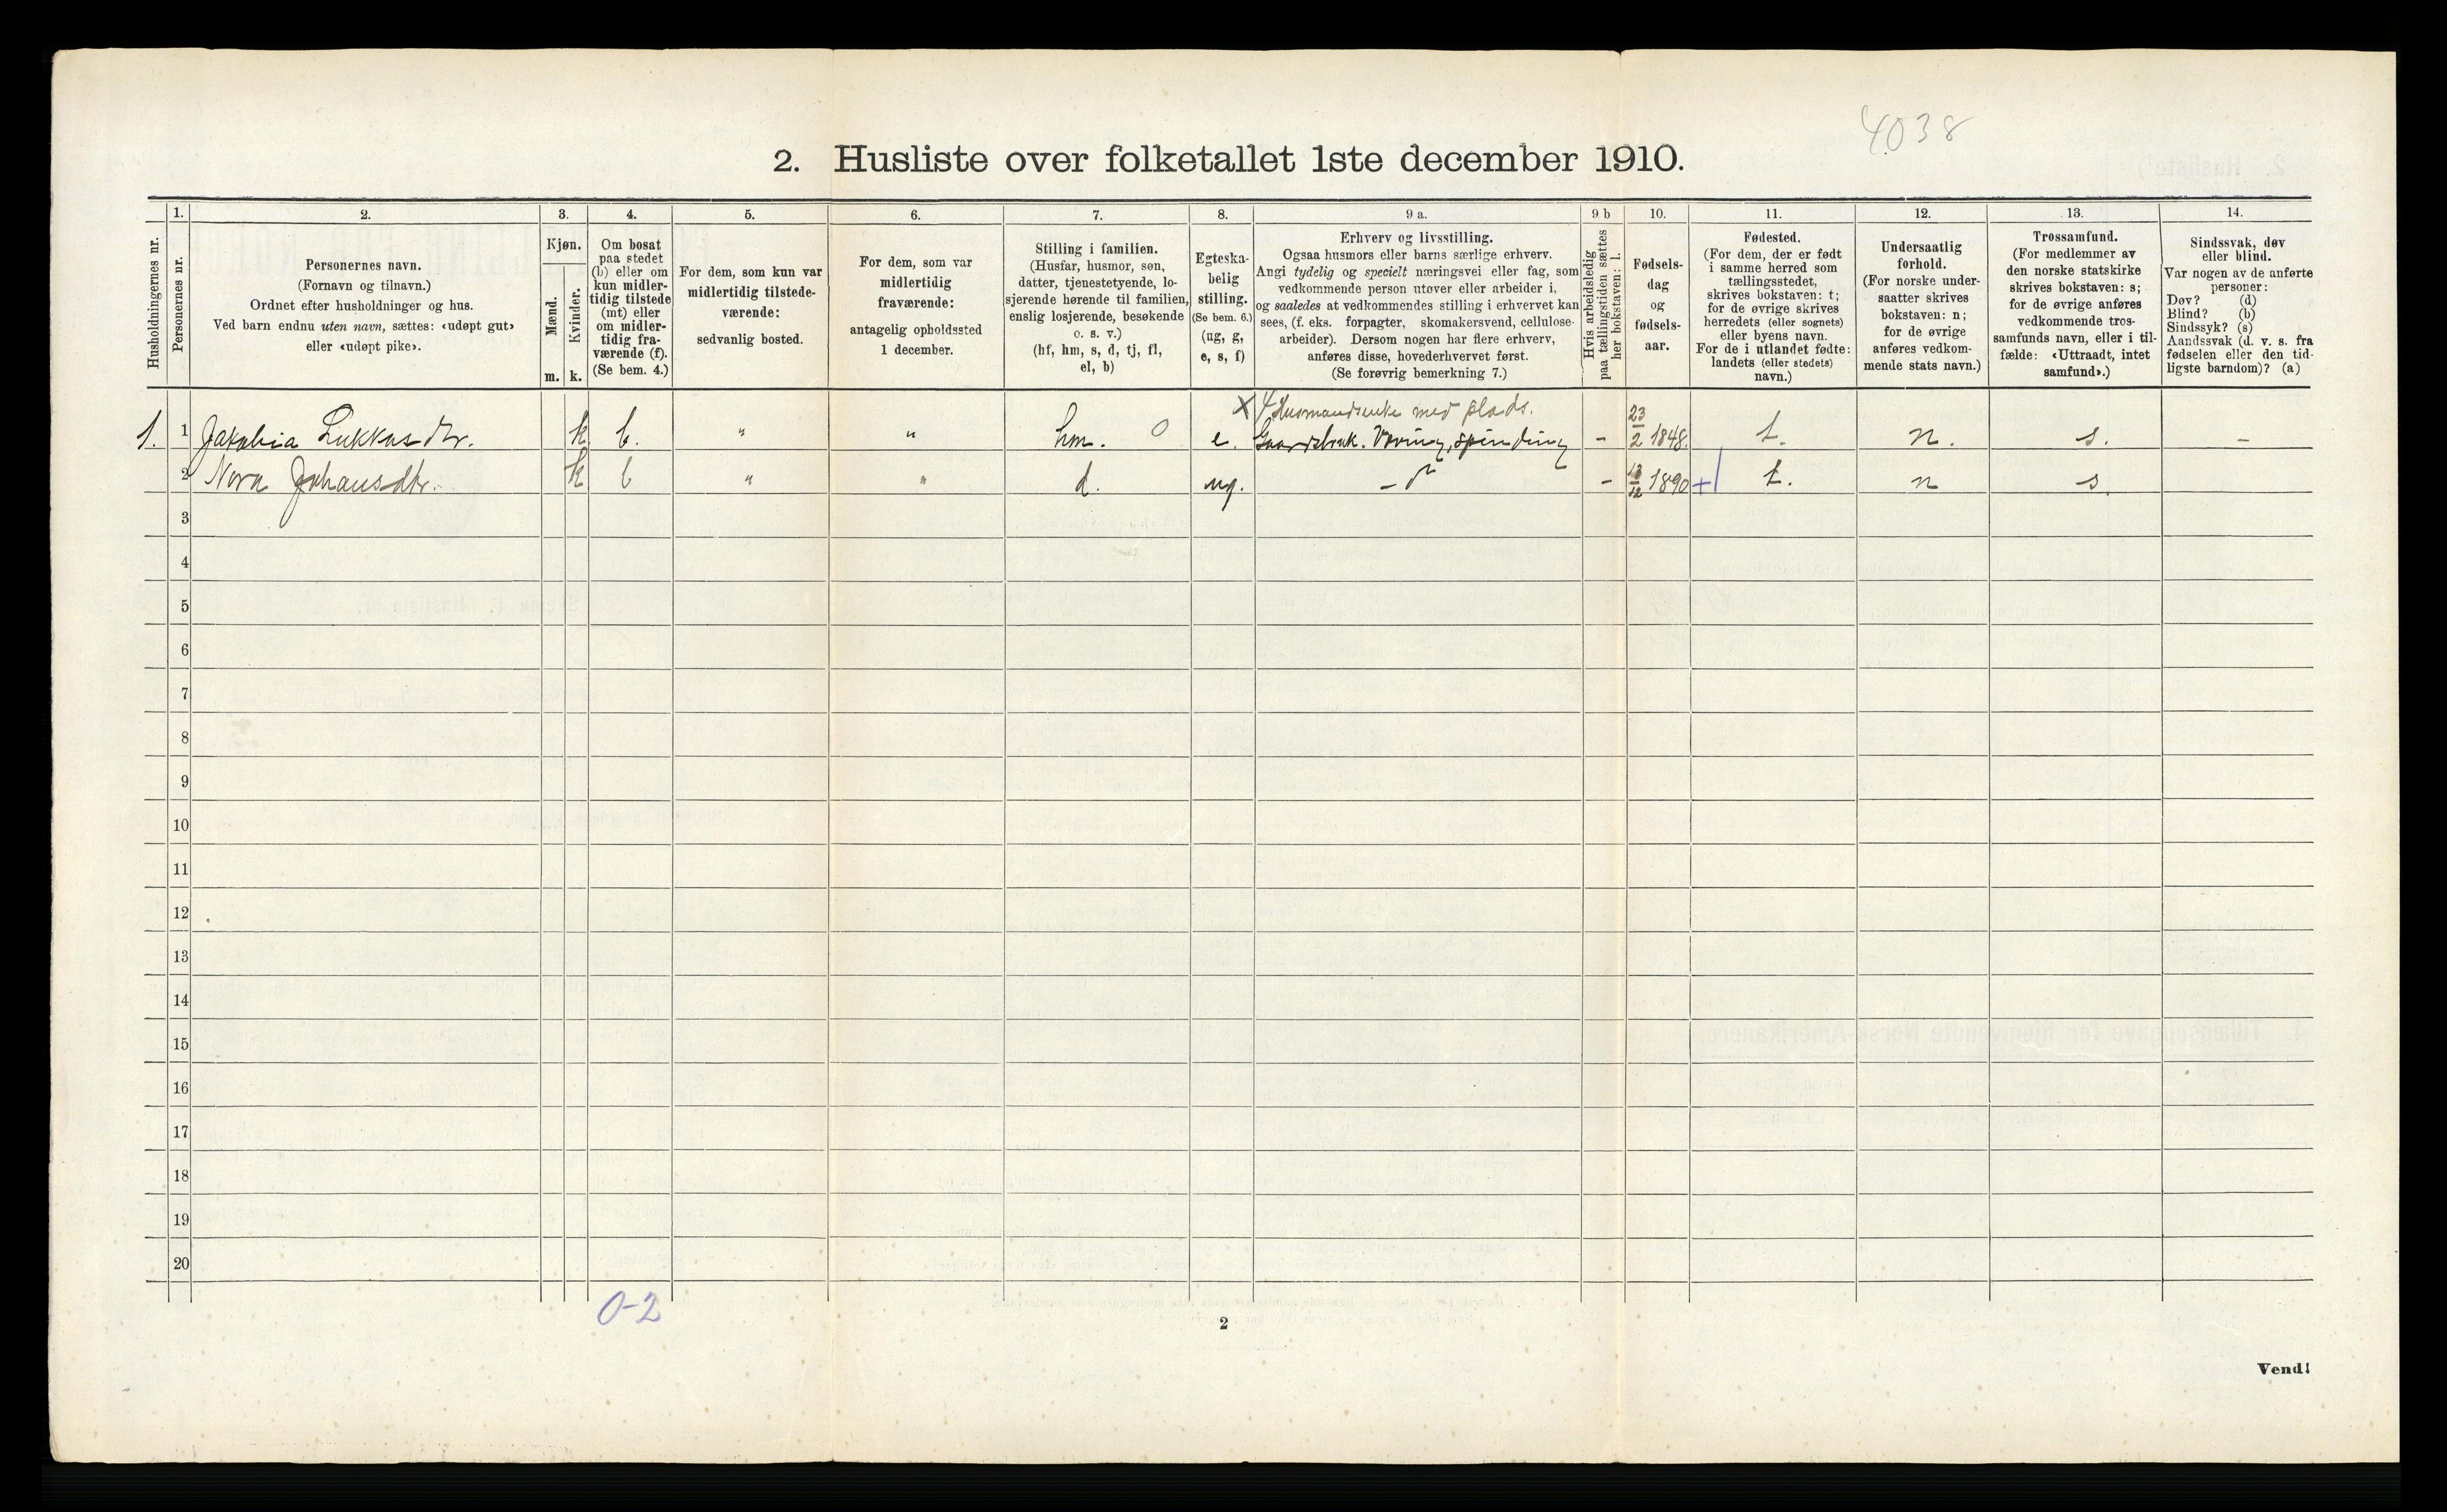 4038
2. Husliste over folketallet 1ste december 1910.
Husholdningernes nr.
1.
Personernes nr.
2.
Personernes navn.
(Fornavn og tilnavn.)
Ordnet efter husholdninger og hus.
Ved barn endnu uten navn, sættes: «udøpt gut»
eller «udøpt pike».
3.
Kjøn.
Mænd.
Kvinder.
m. k.
4.
Om bosat
paa stedet
(b) eller om
kun midler-
tidig tilstede
(mt) eller
om midler-
tidig fra-
værende (f).
(Se bem. 4.)
5.
For dem, som kun var
midlertidig tilstede-
værende:
sedvanlig bosted.
6.
For dem, som var
midlertidig
fraværende:
antagelig opholdssted
1 december.
7.
Stilling i familien.
(Husfar, husmor, søn,
datter, tjenestetyende, lo-
sjerende hørende til familien,
enslig losjerende, besøkende
o. s. v.)
(hf, hm, s, d, tj, fl,
el, b)
8.
Egteska-
belig
stilling.
(Se bem. 6.)
(ug, g,
e, s, f)
9 a.
Erhverv og livsstilling.
Ogsaa husmors eller barns særlige erhverv.
Angi tydelig og specielt næringsvei eller fag, som
vedkommende person utøver eller arbeider i,
og saaledes at vedkommendes stilling i erhvervet kan
sees, (f. eks. forpagter, skomakersvend, cellulose-
arbeider). Dersom nogen har flere erhverv,
anføres disse, hovederhvervet først.
(Se forøvrig bemerkning 7.)
9 b
Hvis arbeidsledig
paa tællingstiden sættes
her bokstaven: l.
10.
Fødsels-
dag
og
fødsels-
aar.
11.
Fødested.
(For dem, der er født
i samme herred som
tællingsstedet,
skrives bokstaven: t;
for de øvrige skrives
herredets (eller sognets)
eller byens navn.
For de i utlandet fødte:
landets (eller stedets)
navn.)
12.
Undersaatlig
forhold.
(For norske under-
saatter skrives
bokstaven: n;
for de øvrige
anføres vedkom-
mende stats navn.)
13.
Trossamfund.
(For medlemmer av
den norske statskirke
skrives bokstaven: s;
for de øvrige anføres
vedkommende tros-
samfunds navn, eller i til-
fælde: «Uttraadt, intet
samfund».)
14.
Sindssvak, døv
eller blind.
Var nogen av de anførte
personer:
Døv? (d)
Blind? (b)
Sindssyk? (s)
Aandssvak (d. v. s. fra
fødselen eller den tid-
ligste barndom)? (a)
X Husmandsenke med plads.
1. 1 Jakobia Lukkasdtr. k b. " " hm. 0 e. Gaardsbruk. Væving, spinding - 23/2 1848. t. n. s. -
2 Nora Johansdtr. k b " " d. ug. - 13/12 1890 + t. n s.
3
4
5
6
7
8
9
10
11
12
13
14
15
16
17
18
19
20
0-2
2
Vend!